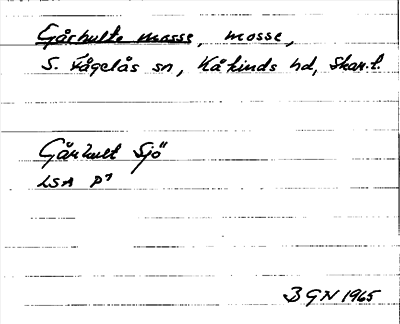 Gårhults mosse, mosse,
S. Fågelås sn, Kåkinds hd, Skar.l.
Gårhult Sjö
LSA P7
BGN 1965